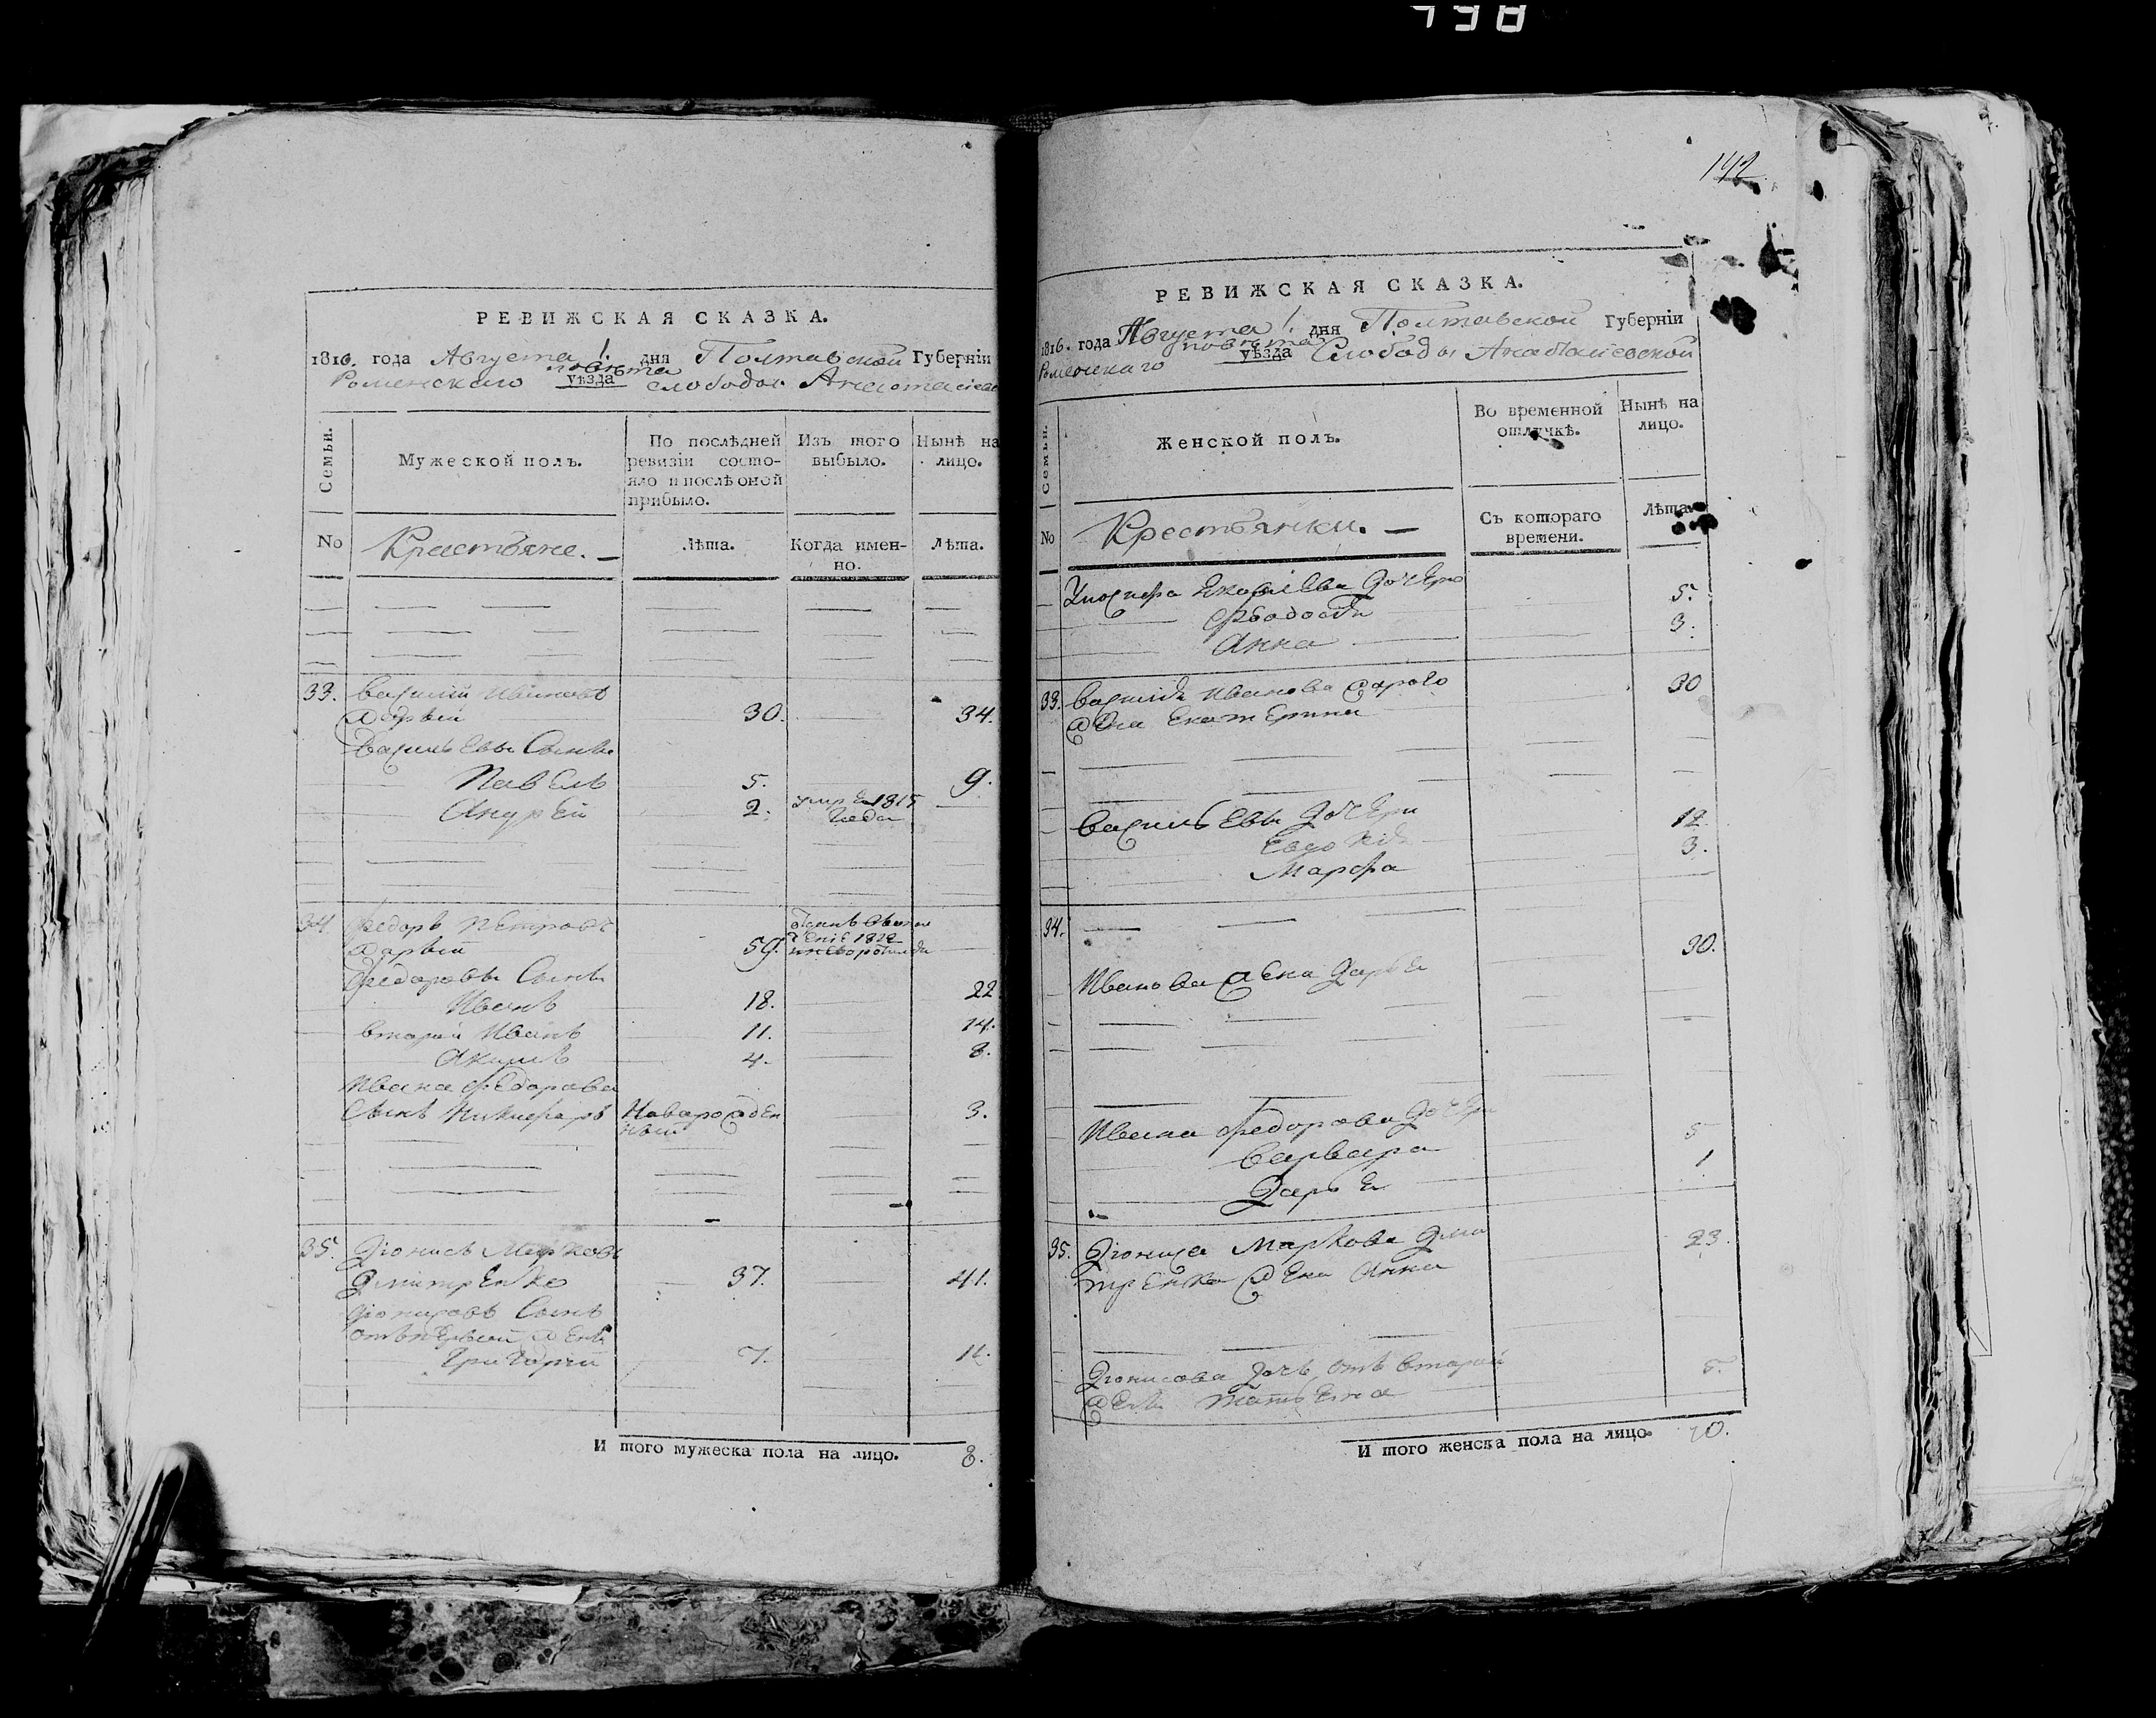 798
РЕВИЖСКАЯ СКАЗКА.
1816. года Августа 1. дня Полтавской Губерніи
повѣта
Роменскаго уѣзда слободы
Семьи.
Мужеской полъ.
По послѣдней ревизіи состо-
яло и послѣ оной
прибыло.
Изъ того
выбыло.
Нынѣ на
лицо.
No
Крестьяне. —
Лѣта.
Когда имен-
но.
Лѣта.
33. Василий Ивановъ
30. 34.
Васильевы Сынъи
Павелъ 5. 9.
Андрей 2. 1815
года
34. Федоръ Петровъ
59. 1812
Федоровы Сынъи
Иванъ 18. 22
вторый Иванъ 11. 14.
Акимъ 4. 8.
Ивана Федорова
Сынъ Никифоръ Наворожден 3.
ный
35. Діонисъ Марковъ
Дмитренко 37. 41.
Діонисовъ Сынъ
отъ первой жены
Григорий 7. 11.
И того мужеска пола на лицо. 8.
142
РЕВИЖСКАЯ СКАЗКА.
1816. года Августа 1. дня Полтавской Губерніи
повѣта
Роменскаго уѣзда Слободы
Семьи.
Женской полъ.
Во временной
отлучкѣ.
Нынѣ на
лицо.
No
Крестьянки. —
Съ котораго
времени.
Лѣта.
Яковлева дочери
Феодосія 5.
Анна 3.
33. Василія Иванова 30
жена Екатерина
Васильевы дочери
Евдокія 12.
Марфа 3.
34.
Иванова жена Дарья 30.
Ивана Федорова дочери
Варвара 5
Дарья 1
35. Діониса Маркова Дми 23.
тренка жена Анна
Діонисова дочь отъ второй 5.
жены Татьяна
И того женска пола на лицо. 10.